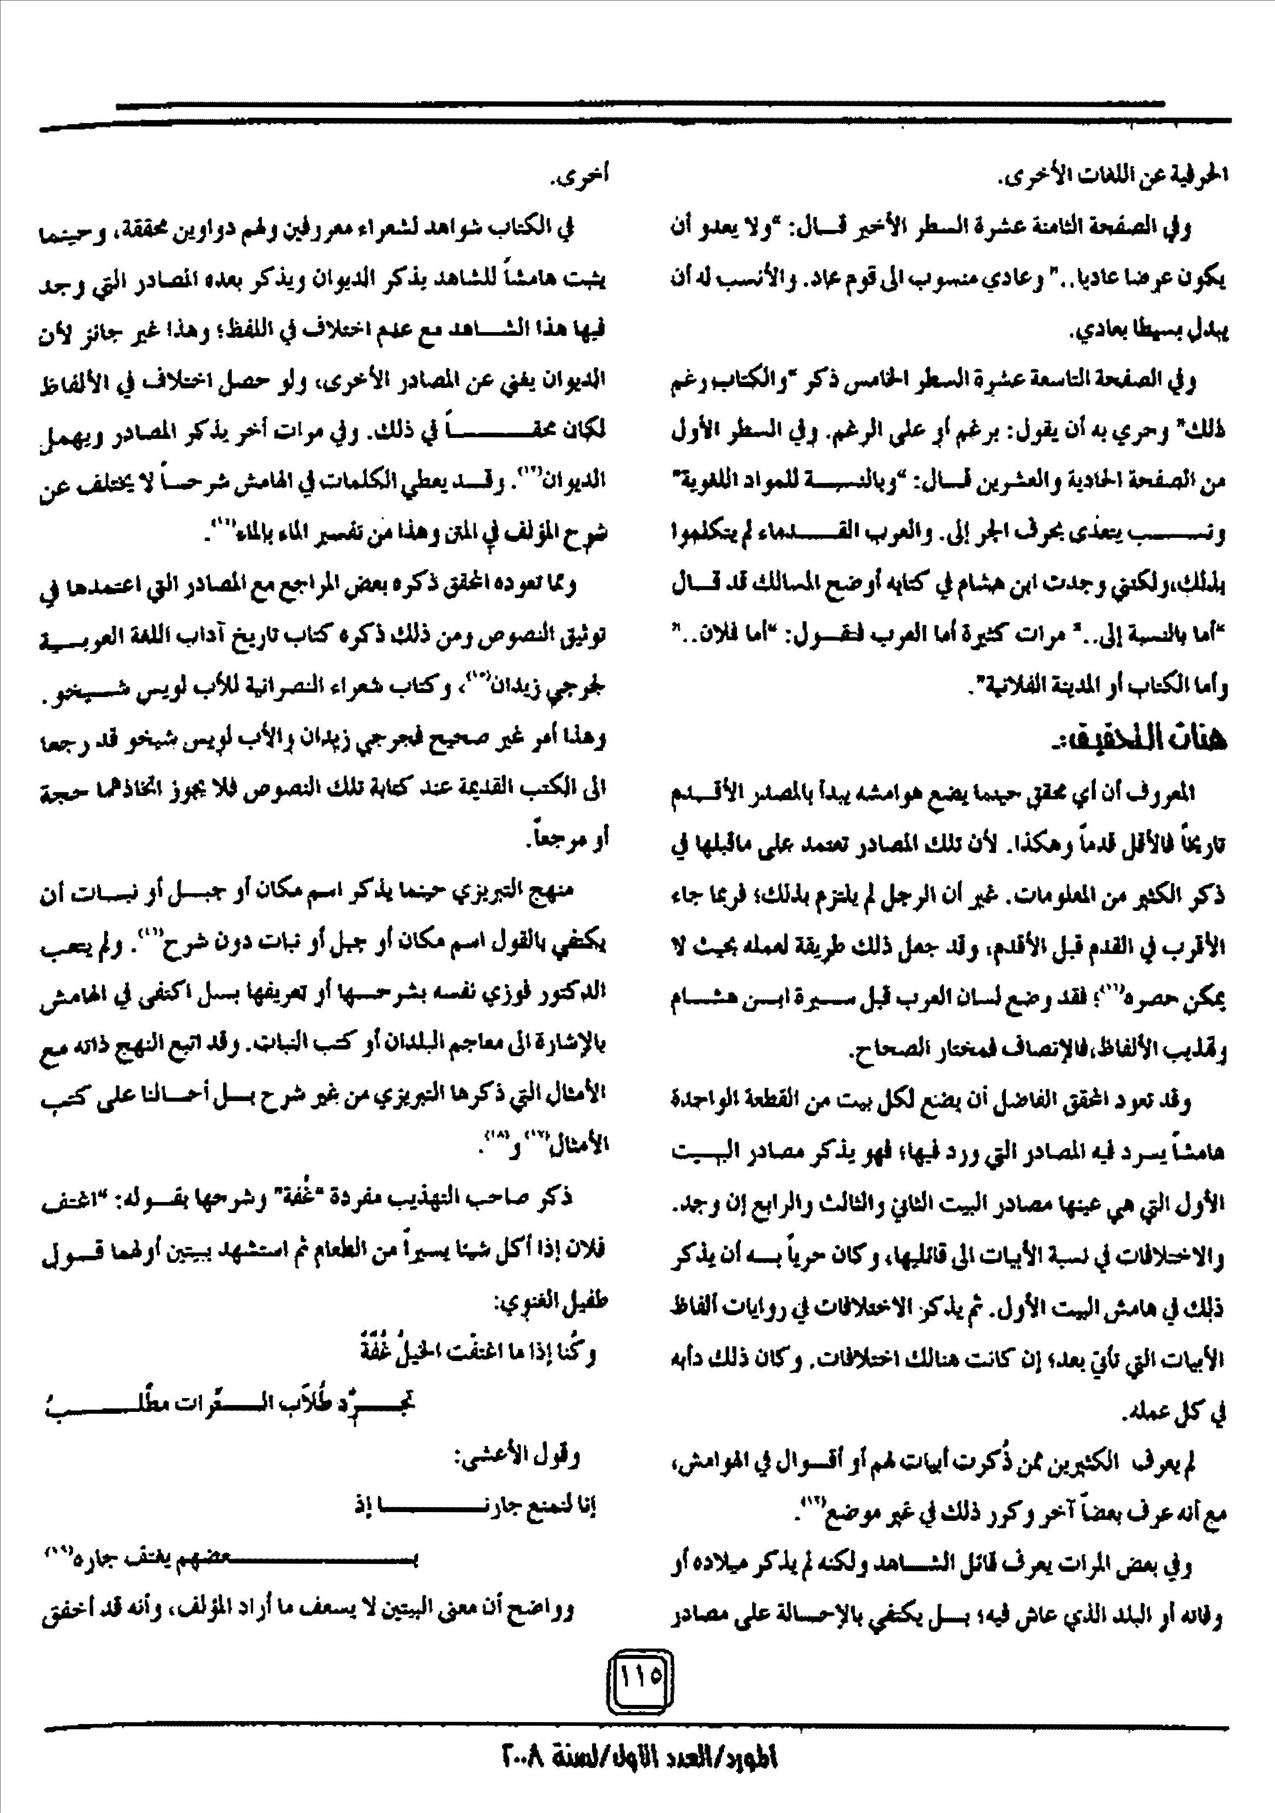 الحرفية عن اللغات الأخرى.
وفي الصفحة الثامنة عشرة السطر الأخير قـال: "ولا يعدو أن
يكون عرضا عاديا.." وعادي منسوب الى قوم عاد. والأنسب له أن
يبدل بسيطا بعادي.
وفي الصفحة التاسعة عشرة السطر الخامس ذكر "والكتاب رغم
ذلك" وحري به أن يقول: برغم أو على الرغم. وفي السطر الأول
من الصفحة الحادية والعشرين قـال: "وبالنسبـة للمواد اللغوية"
ونسـب يتعدى بحرف الجر إلى. والعرب القـدماء لم يتكلموا
بذلك،ولكنني وجدت ابن هشام في كتابه أوضح المسالك قد قـال
"أما بالنسبة إلى.." مرات كثيرة أما العرب فتقول: "أما فلان.."
وأما الكتاب أو المدينة الفلانية".
هنات التحقيق:ـ
المعروف أن أي محقق حينما يضع هوامشه يبدأ بالمصدر الأقـدم
تاريخاً فالأقل قدماً وهكذا. لأن تلك المصادر تعتمد على ماقبلها في
ذكر الكثير من المعلومات. غير أن الرجل لم يلتزم بذلك؛ فربما جاء
الأقرب في القدم قبل الأقدم، وقد جعل ذلك طريقة لعمله بحيث لا
يمكن حصره(١١)؛ فقد وضع لسان العرب قبل سـيرة ابـن هشـام
وتهذيب الألفاظ،فالإنصاف فمختار الصحاح.
وقد تعود المحقق الفاضل أن يضع لكل بيت من القطعة الواحدة
هامشاً يسرد فيه المصادر التي ورد فيها؛ فهو يذكر مصادر البيـت
الأول التي هي عينها مصادر البيت الثاني والثالث والرابع إن وجد.
والاختلافات في نسبة الأبيات الى قائليها، وكان حرياً بـه أن يذكر
ذلك في هامش البيت الأول. ثم يذكر الاختلافات في روايات ألفاظ
الأبيات التي تأتي بعد؛ إن كانت هنالك اختلافات. وكان ذلك دأبه
في كل عمله.
لم يعرف الكثيرين ممن ذُكرت أبيات لهم أو أقـوال في الهوامش،
مع أنه عرف بعضاً آخر وكرر ذلك في غير موضع(١٢).
وفي بعض المرات يعرف قائل الشـاهد ولكنه لم يذكر ميلاده أو
وفاته أو البلد الذي عاش فيه؛ بـل يكتفي بالإحسالة على مصادر
أخرى.
في الكتاب شواهد لشعراء معروفين ولهم دواوين محققة، وحينما
يثبت هامشاً للشاهد يذكر الديوان ويذكر بعده المصادر التي وجد
فيها هذا الشـاهد مع عدم اختلاف في اللفظ؛ وهذا غير جائز لأن
الديوان يغني عن المصادر الأخرى، ولو حصل اختلاف في الألفاظ
لكان محقـاً في ذلك. وفي مرات أخر يذكر المصادر ويهمل
الديوان(١٣). وقـد يعطي الكلمات في الهامش شرحـاً لا يختلف عن
شرح المؤلف في المتن وهذا من تفسير الماء بالماء(١٤).
ومما تعوده المحقق ذكره بعض المراجع مع المصادر التي اعتمدها في
توثيق النصوص ومن ذلك ذكره كتاب تاريخ آداب اللغة العربيـة
لجرجي زيدان(١٥)، وكتاب شعراء النصرانية للأب لويس شـيخو.
وهذا أمر غير صحيح فجرجي زيدان والأب لويس شيخو قد رجعا
الى الكتب القديمة عند كتابة تلك النصوص فلا يجوز اتخاذهما حجة
أو مرجعاً.
منهج التبريزي حينما يذكر اسم مكان أو جبـل أو نبـات أن
يكتفي بالقول اسم مكان أو جبل أو نبات دون شرح(١٦). ولم يتعب
الدكتور فوزي نفسه بشرحـها أو تعريفها بـل اكتفى في الهامش
بالإشارة الى معاجم البلدان أو كتب النبات. وقد اتبع النهج ذاته مع
الأمثال التي ذكرها التبريزي من غير شرح بـل أحـالنا على كتب
الأمثال(١٧) و(١٨).
ذكر صاحب التهذيب مفردة "غُفة" وشرحها بقـوله: "اغتف
فلان إذا أكل شيئا يسيراً من الطعام ثم استشهد ببيتين أولهما قـول
طفيل الغنوي:
وكُنا إذا ما اغتفّت الخيلُ غُفّةً
تجـرّد طُلاّب الـتّرات مطّلـبُ
وقول الأعشى:
إنا لنمنع جارنـا إذ
بـعضهم يغتف جاره(١٩)
وواضح أن معنى البيتين لا يسعف ما أراد المؤلف، وأنه قد أخفق
١١٥
المورد/العدد الأول/لسنة ٢٠٠٨